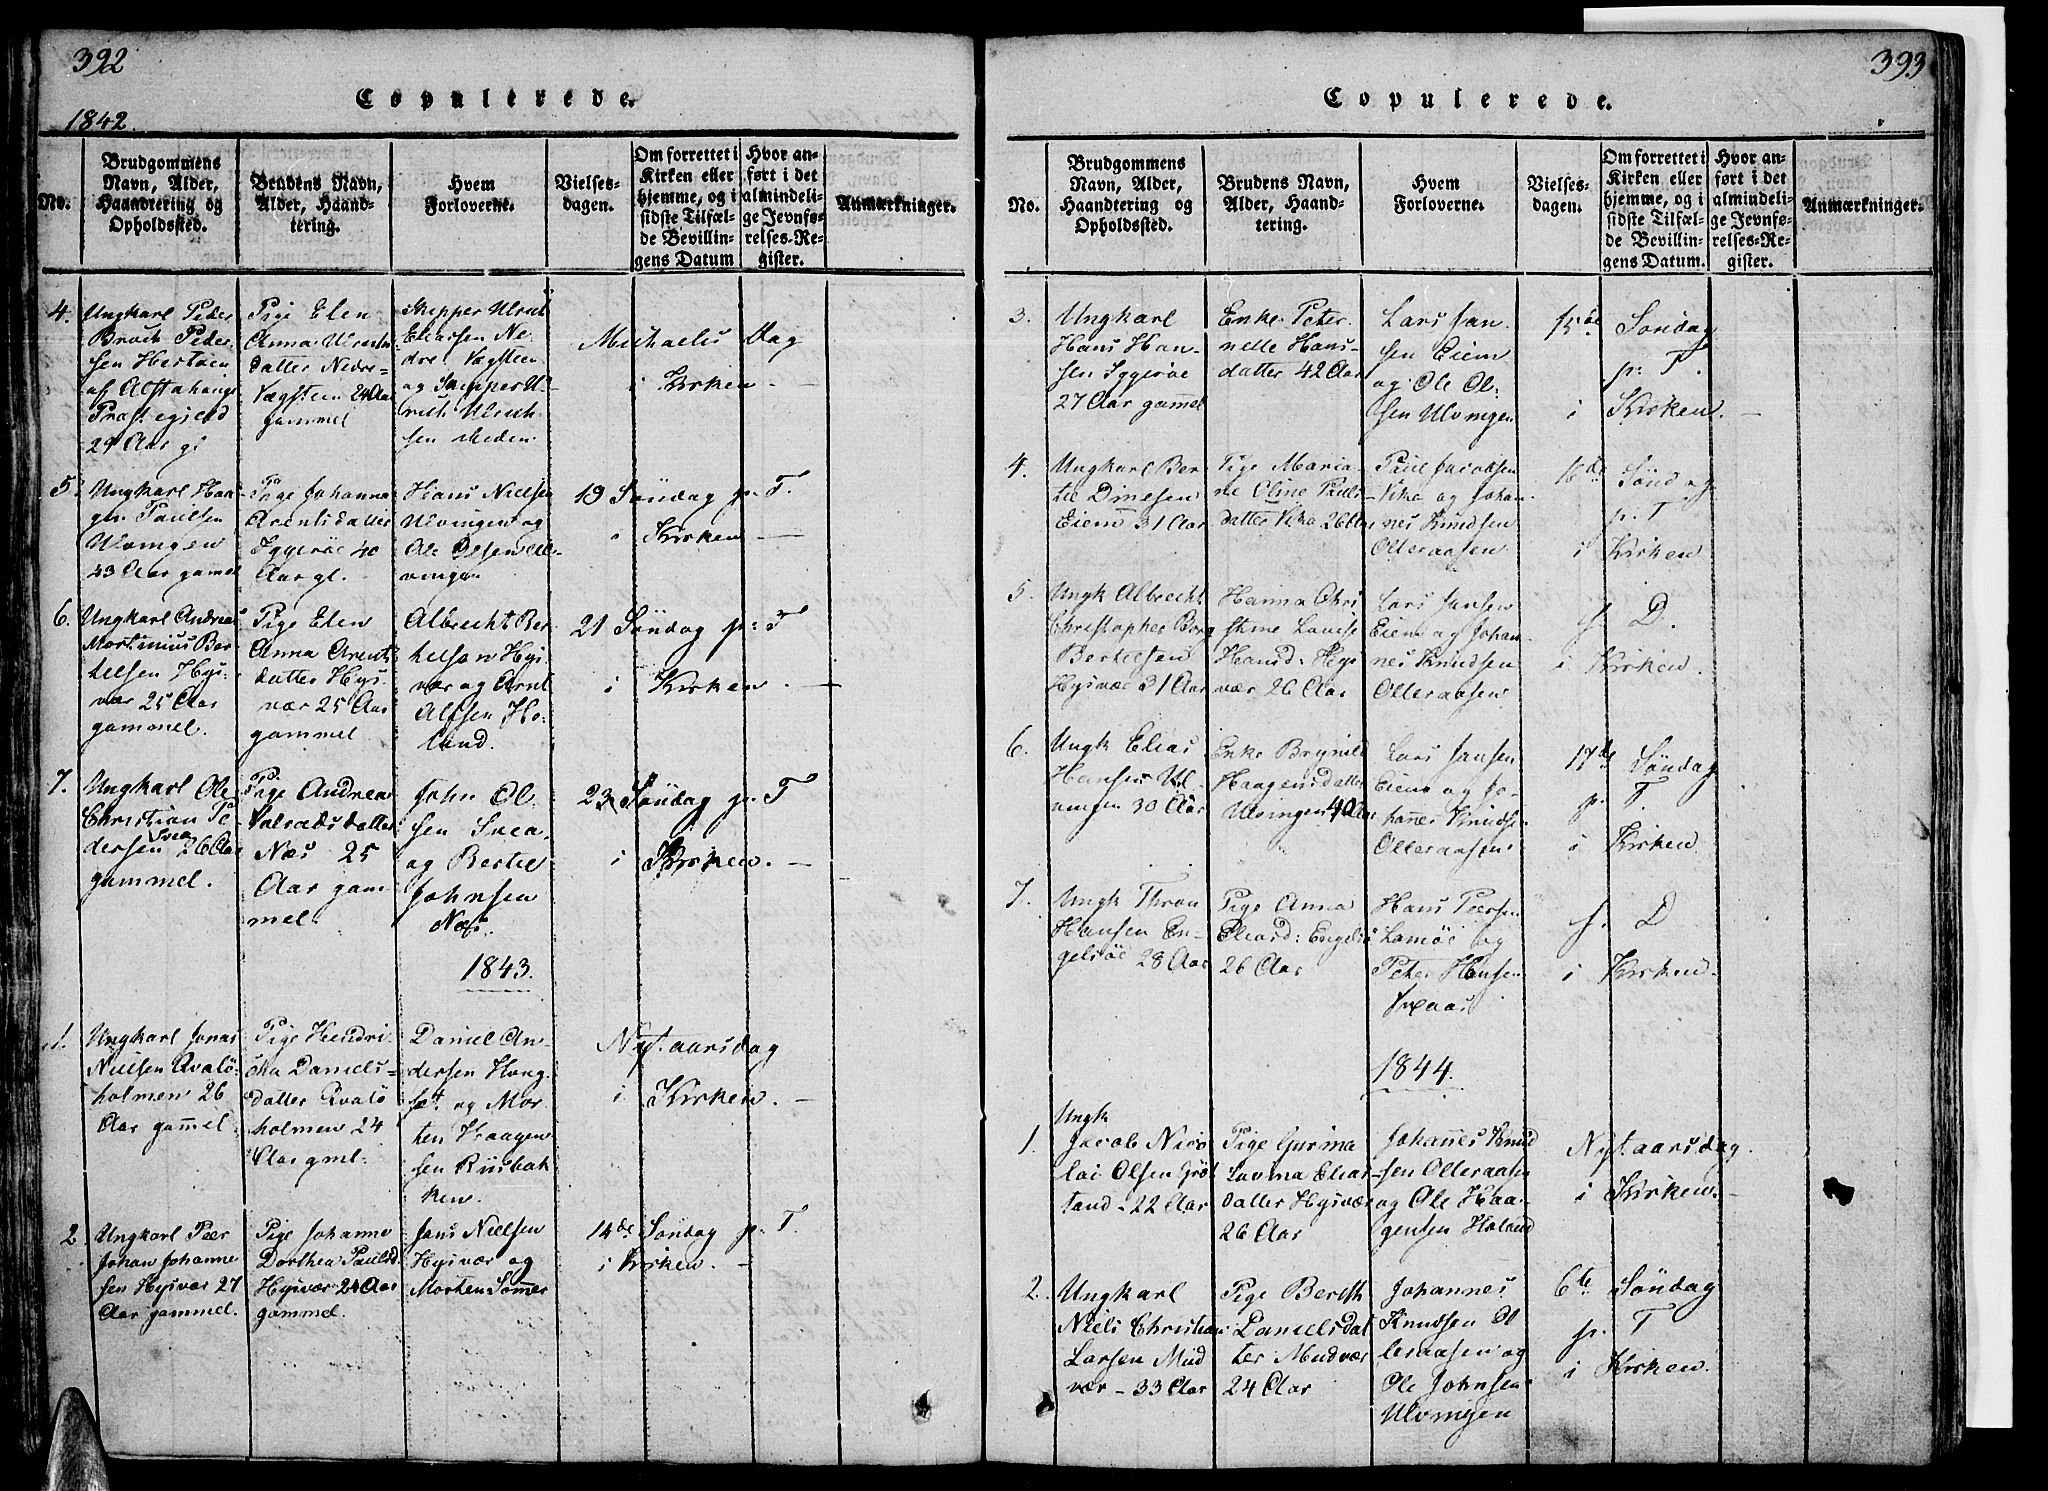 392
Copulerede.
1842.
No.
Brudgommens Navn, Alder, Haandtering og Opholdssted.
Brudens Navn, Alder, Haandtering.
Hvem Forloverne.
Vielsesdagen.
Om forrettet i Kirken eller hjemme, og i sidste Tilfælde Bevillingens Datum
Hvor anført i det almindelige Jevnførelses-Register.
Anmærkninger.
4.
Ungkarl Peder
Broch Peder
sen Hertøen
af Alstahoug
Præstegjeld
29 Aar gl
Pige Elen
Anna Ulrichs
datter Nedre
Vægsteen 24 Aar
gammel
Skipper Ulrich
Eliassen Ne
dre Vægsteen
og Skipper Ul
rich Ulrich
sen
Michaelis Dag
i Kirken. —
5.
Ungkarl Haa
gen Paulsen
Ulvingen
43 Aar gammel
Pige Johanna
Arentsdatter
Iggerøe 40
Aar gl.
Hans Nielsen
Ulvingen og
Ole Olsen Ul
vingen
19 Søndag p. T.
i Kirken —
6.
Ungkarl Andreas
Mortinius Ber
thelsen Hys
vær 25 Aar
gammel.
Pige Elen
Anna Arents
datter Hys
vær 25 Aar
gammel
Albrecht Ber
thelsen Hys
vær og Arnt
Alfsen Ho
land.
21 Søndag p: T
i Kirken. —
7.
Ungkarl Ole
Christian Pe
dersen Svea 26 Aar
gammel.
Pige Andrea
datter
Næs 25
Aar gam
mel.
John Ol
sen Svea,
og Bertel
Johnsen
Næs.
23 Søndag p. T
i Kirken. —
1843.
1.
Ungkarl Jonas
Nielsen Qvalø
holmen 26
Aar gammel.
Pige Hendri
cha Daniels
datter Qvalø
holmen 24
Aar gml.
Daniel An
dersen Houg
set og Mor
ten Haagen
sen Riisbak
ken.
Nyt aarsdag
i Kirken. —
2.
Ungkarl Peer
Johan Johanne
sen Hysvær 27
Aar gammel.
Pige Johanne
Dorthea Paulsd
Hysvær 24 Aar
gammel.
Jens Nielsen
Hysvær og
Morten Sømnes
14de Søndag p. T
i Kirken. —
393
Copulerede.
No.
Brudgommens Navn, Alder, Haandtering og Opholdssted.
Brudens Navn, Alder, Haandtering.
Hvem Forloverne.
Vielsesdagen.
Om forrettet i Kirken eller hjemme, og i sidste Tilfælde Bevillingens Datum.
Hvor anført i det almindelige Jevnførelses-Register.
Anmærkninger.
3.
Ungkarl
Hans Han
sen Iggerøe
27 Aar gamel
Enke Peter
nelle Hans
datter 42 Aar
Lars Jan
sen Eiem
og Ole Ol
sen Ulvingen
15de Søndag
p: T.
i Kirken. —
4.
Ungkarl Ber
tel Dinesen
Eiem 31 Aar
Pige Maria
ne Oline Pauls
datter Vika 26 Aar
Paul Jacobsen
Vika og Johan
nes Knudsen
Olleraasen
16de Søndag
p. T
i Kirken
5.
Ungk Albrecht
Christopher Borg
Bertelsen
Hysvær 31 Aar
Hanna Chri
stine Lovise
Hansd: Hys
vær 26 Aar
Lars Jansen
Eiem og Johan
nes Knudsen
Olleraasen
f. D.
i Kirken.
6.
Ungk Elias
Hansen Ul
vingen 30 Aar
Enke Brynild
Haagensdatter
Ulvingen 40 Aar
Lars Jansen
Eiem og Jo
hannes Knudse
Olleraasen
17de Søndag
p. T.
i Kirken.
7.
Ungk Thron
Hansen En
gelsøe 28 Aar
Pige Anna
Eliasd: Engelsø
26 Aar
Hans Peersen
Lamøe og
Peter Hansen
f. D
i Kirken.
1844.
1.
Ungk
Jacob Nico
lai Olsen Grøt
land - 22 Aar
Pige Gurina
Lavina Elias
datter Hysvær
26 Aar
Johannes Knud
sen Olleraasen
og Ole Haa
gensen Holand
Nyt aarsdag.
i Kirken. —
2.
Ungkarl
Niels Christian
Larsen Mud
vær - 33 Aar
Pige Bereth
Danielsdat
ter Mudvær
24 Aar
Johannes
Knudsen Ol
leraasen og
Ole Johnsen
Ulvingen
6te Søndag
p. T
i Kirken.